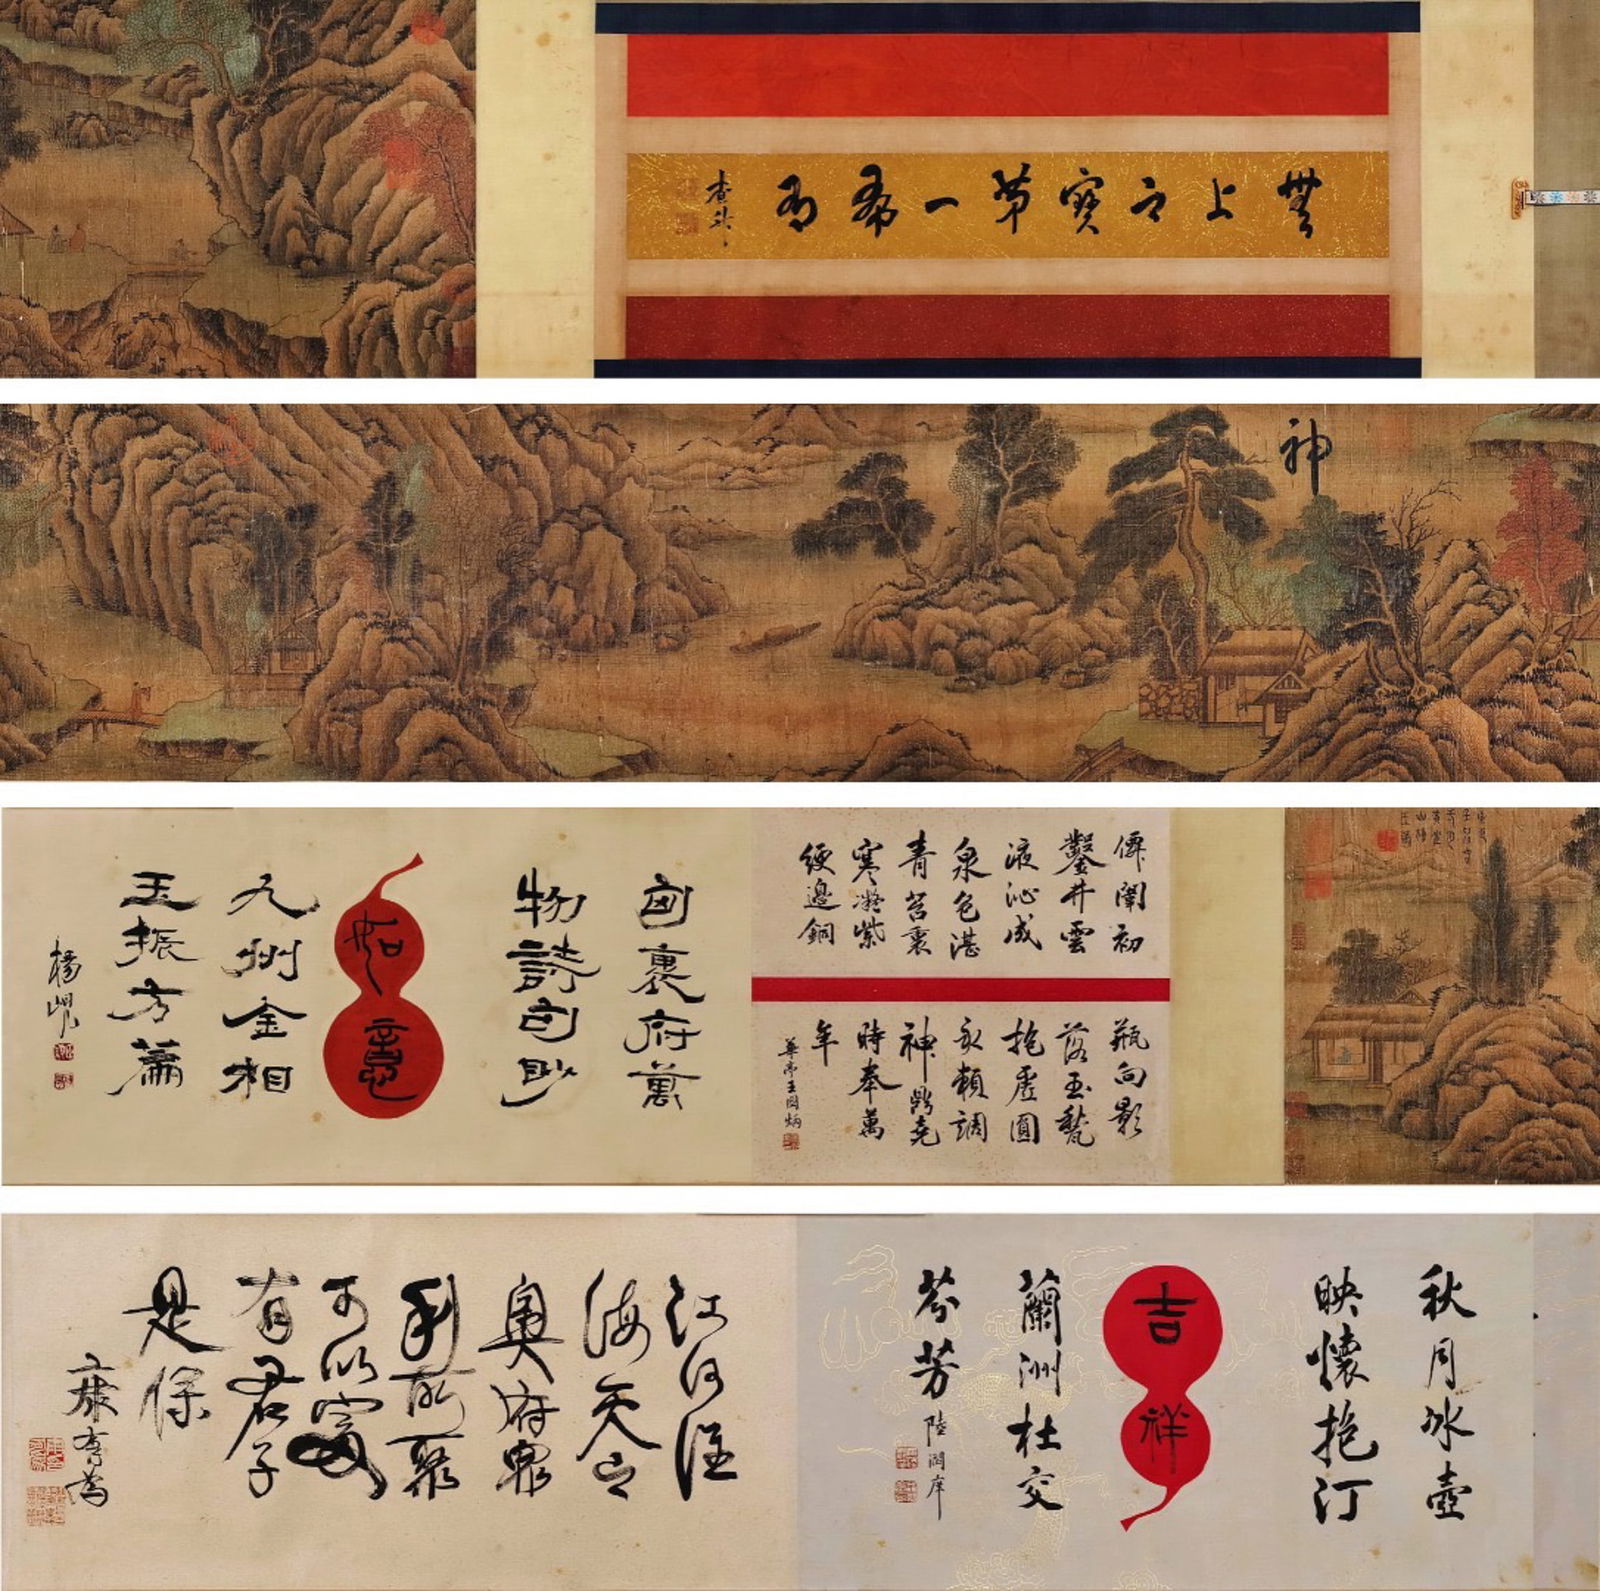 無上之寶第一希有
查昇
神
僊闈初
鑿井雲
液沁成
泉色湛
青苔裏
寒凝紫
綆邊銅
瓶向影
落玉甃
抱虛圓
永願調
神鼎堯
時奉萬
年
華亭王圖炳
匈裹府萬
物詩句眇
如意
九州金相
玉振方篇
楊峴
秋月冰壺
映懷抱汀
吉祥
蘭洲杜交
芬芳
陸潤庠
江河淮
海天之
奧府眾
利所聚
可以富
有君子
是保
康有為